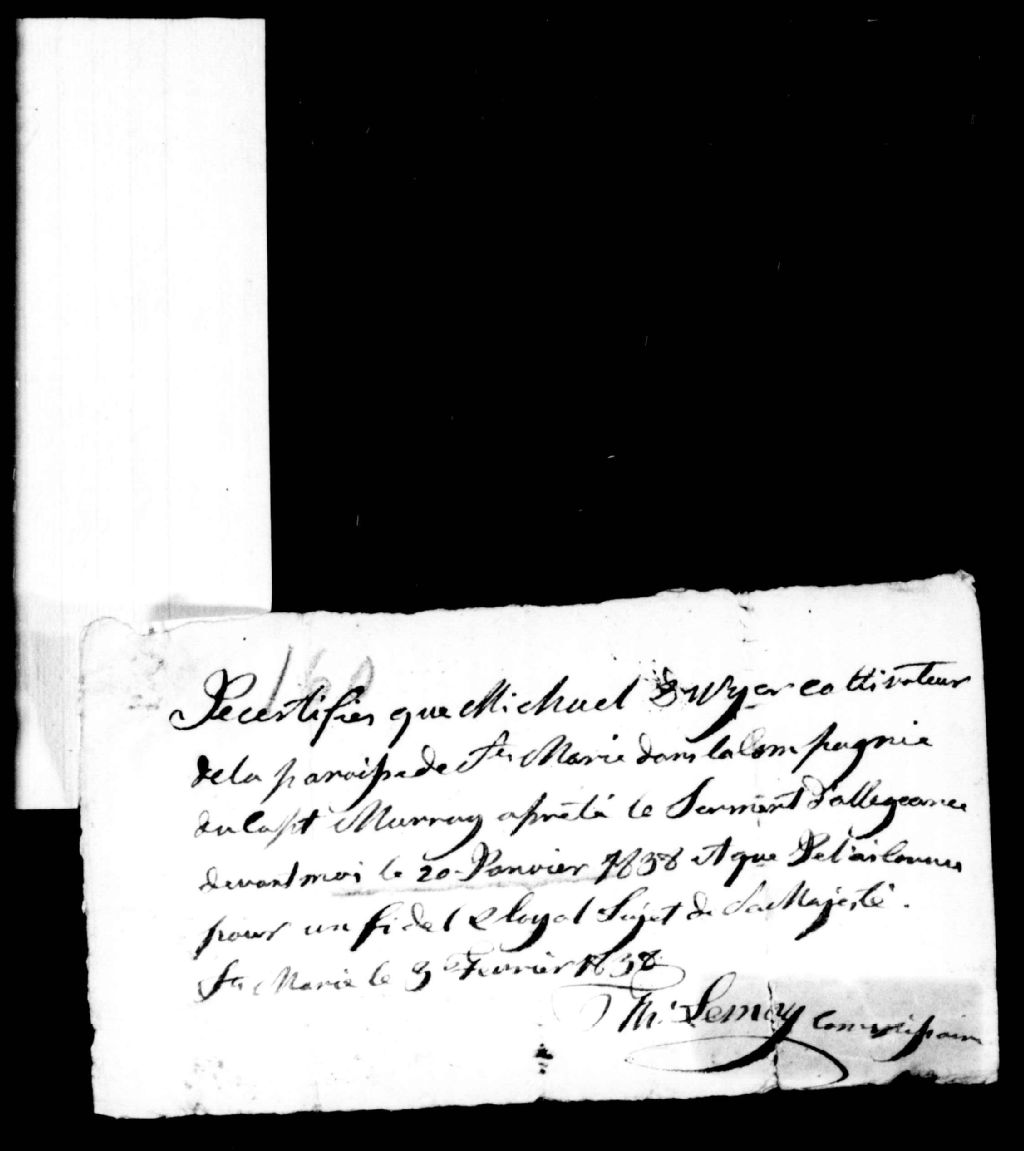 160
Je certifies que Michael Dwyer coltivateur
de la paroisse de Ste Marie dans la Compagnie
du Capt Murray a prêté le Serment d'allegeance
devant moi le 20 Janvier 1838 et que Je l'ai Connue
pour un fidel & loyal Sujet de Sa Majesté.
Ste Marie le 3 Fevrier 1838
Ths Lemay Commissaire